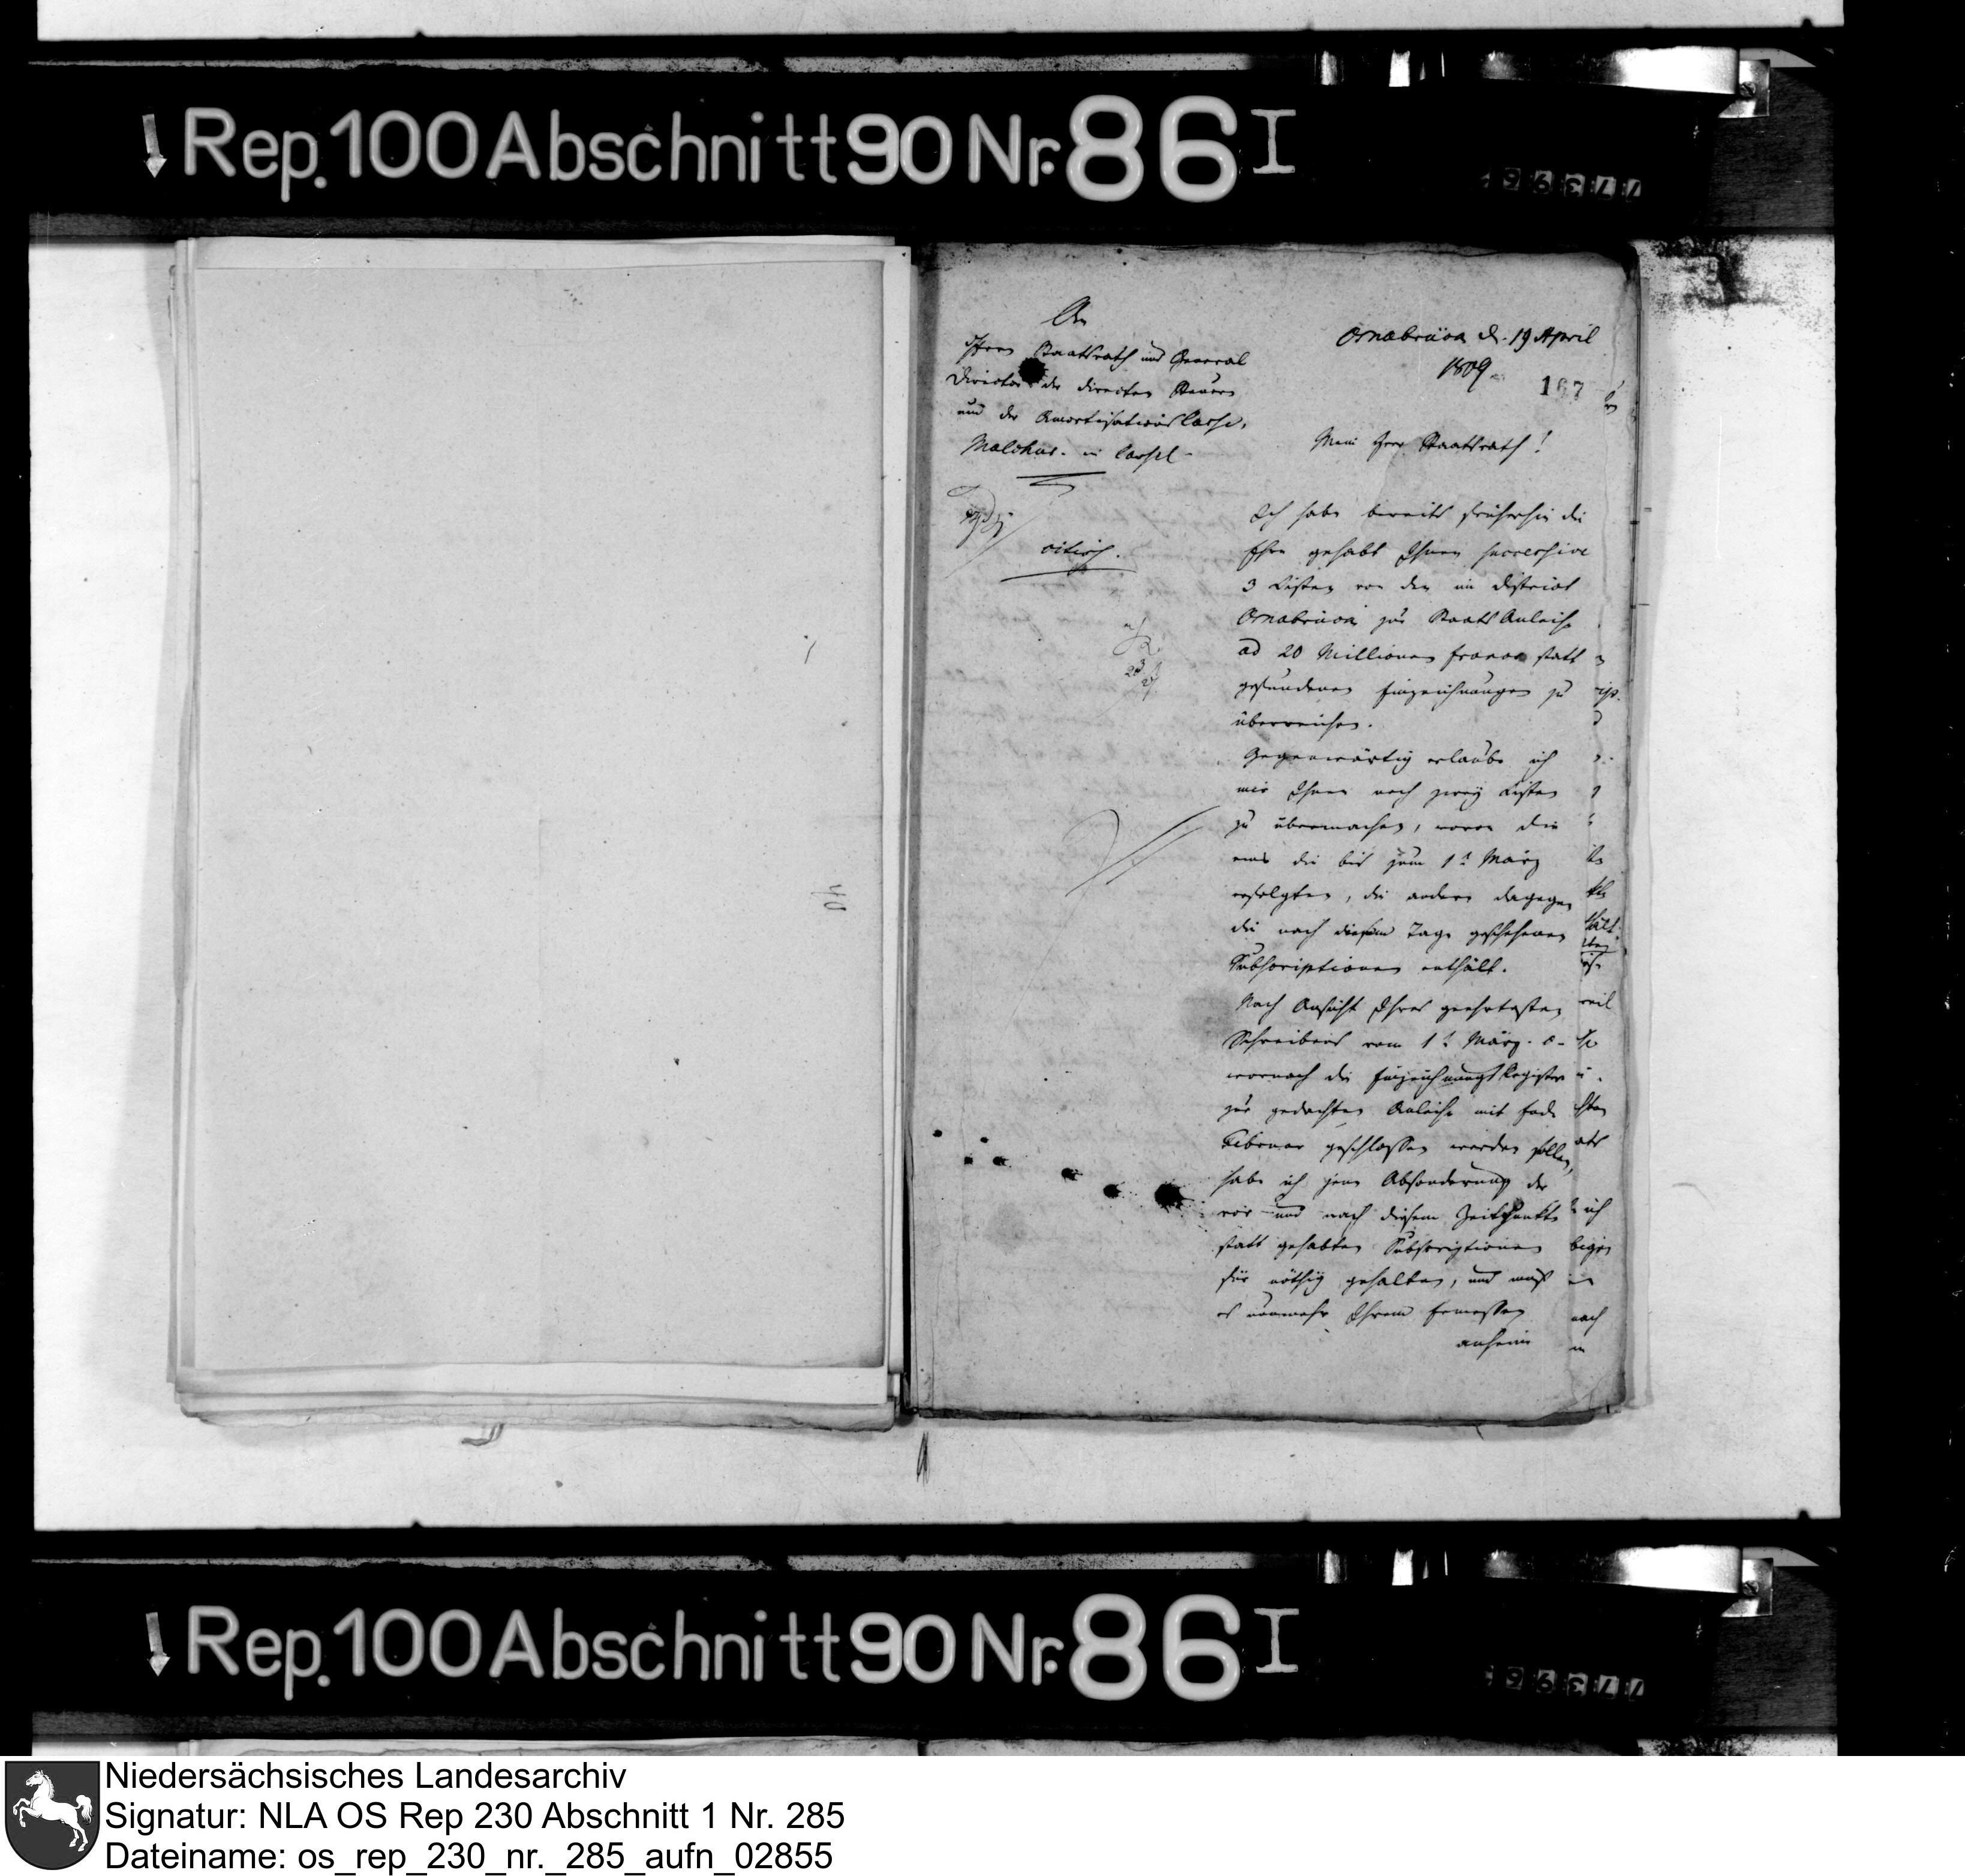 Rep. 100 Abschnitt 90 Nr. 86 I
An
Herrn Staatsrath und General
Director der directen Steuern
und der Amortisations Casse,
Malchus. in Cassel
citiss.
Osnabrück d. 19 April
1809
167
Mein Herr Staatsrath!
Ich habe bereits früherhin die
Ehre gehabt Ihnen successive
3 Listen von den im District
Osnabrück zur Staats Anleihe
ad 20 Millionen Franc statt
gefundenen Einzeichnungen zu
überreichen.
Gegenwärtig erlaube ich
mir Ihnen noch zwey Listen
zu übermachen, wovon die
eine die bis zum 1t März
erfolgten, die andere dagegen
die nach diesem Tage geschehenen
Subscriptionen enthält.
Nach Ansicht Ihres geehrtesten
Schreibens vom 1t März c.
wornach die Einzeichnungs Register
zur gedachten Anleihe mit Ende
Februar geschlossen werden sollen,
habe ich jene Absonderung der
vor und nach diesem Zeitpunkte
statt gehabten Subscriptionen
für nöthig gehalten, und muß
es nunmehr Ihrem Ermessen
anheim
Rep. 100 Abschnitt 90 Nr. 86 I
Niedersächsisches Landesarchiv
Signatur: NLA OS Rep 230 Abschnitt 1 Nr. 285
Dateiname: os_rep_230_nr._285_aufn_02855